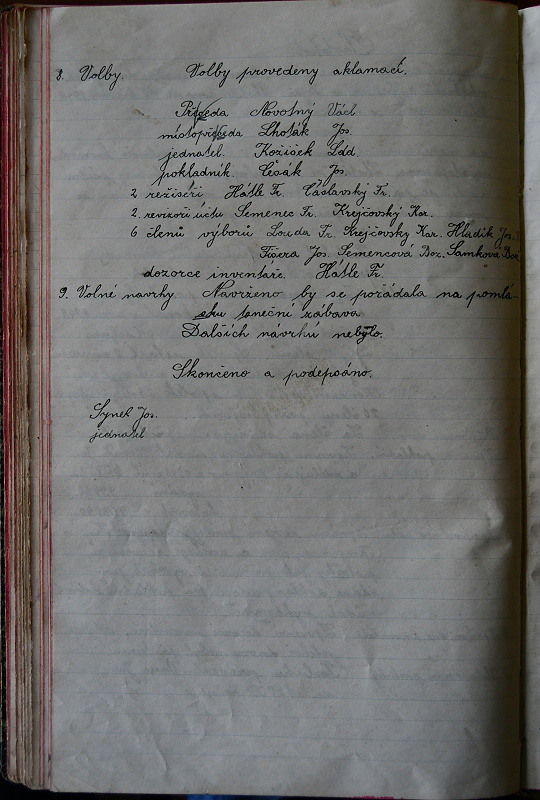 8. Volby. Volby provedeny aklamací.
Předseda Novotný Václ.
místopředseda Lhoták Jos.
jednatel. Kožíšek Ldd.
pokladník. Cesák Jos.
2 režiséři Hátle Fr. Čáslavský Fr.
2. revisoři účtu Semenec Fr. Krejčovský Kar.
6 členů výborů Louda Fr. Krejčovský Kar. Hladík Jos.
Jos. Semencová Boz. Samková Boz.
dozorce inventáře. Hátle Fr.
9. Volné navrhy. Navrženo by se pořádala na pomlá-
sku taneční zábava
Dalších návrhů nebylo.
Skončeno a podepsáno.
Synek Jos.
jednatel